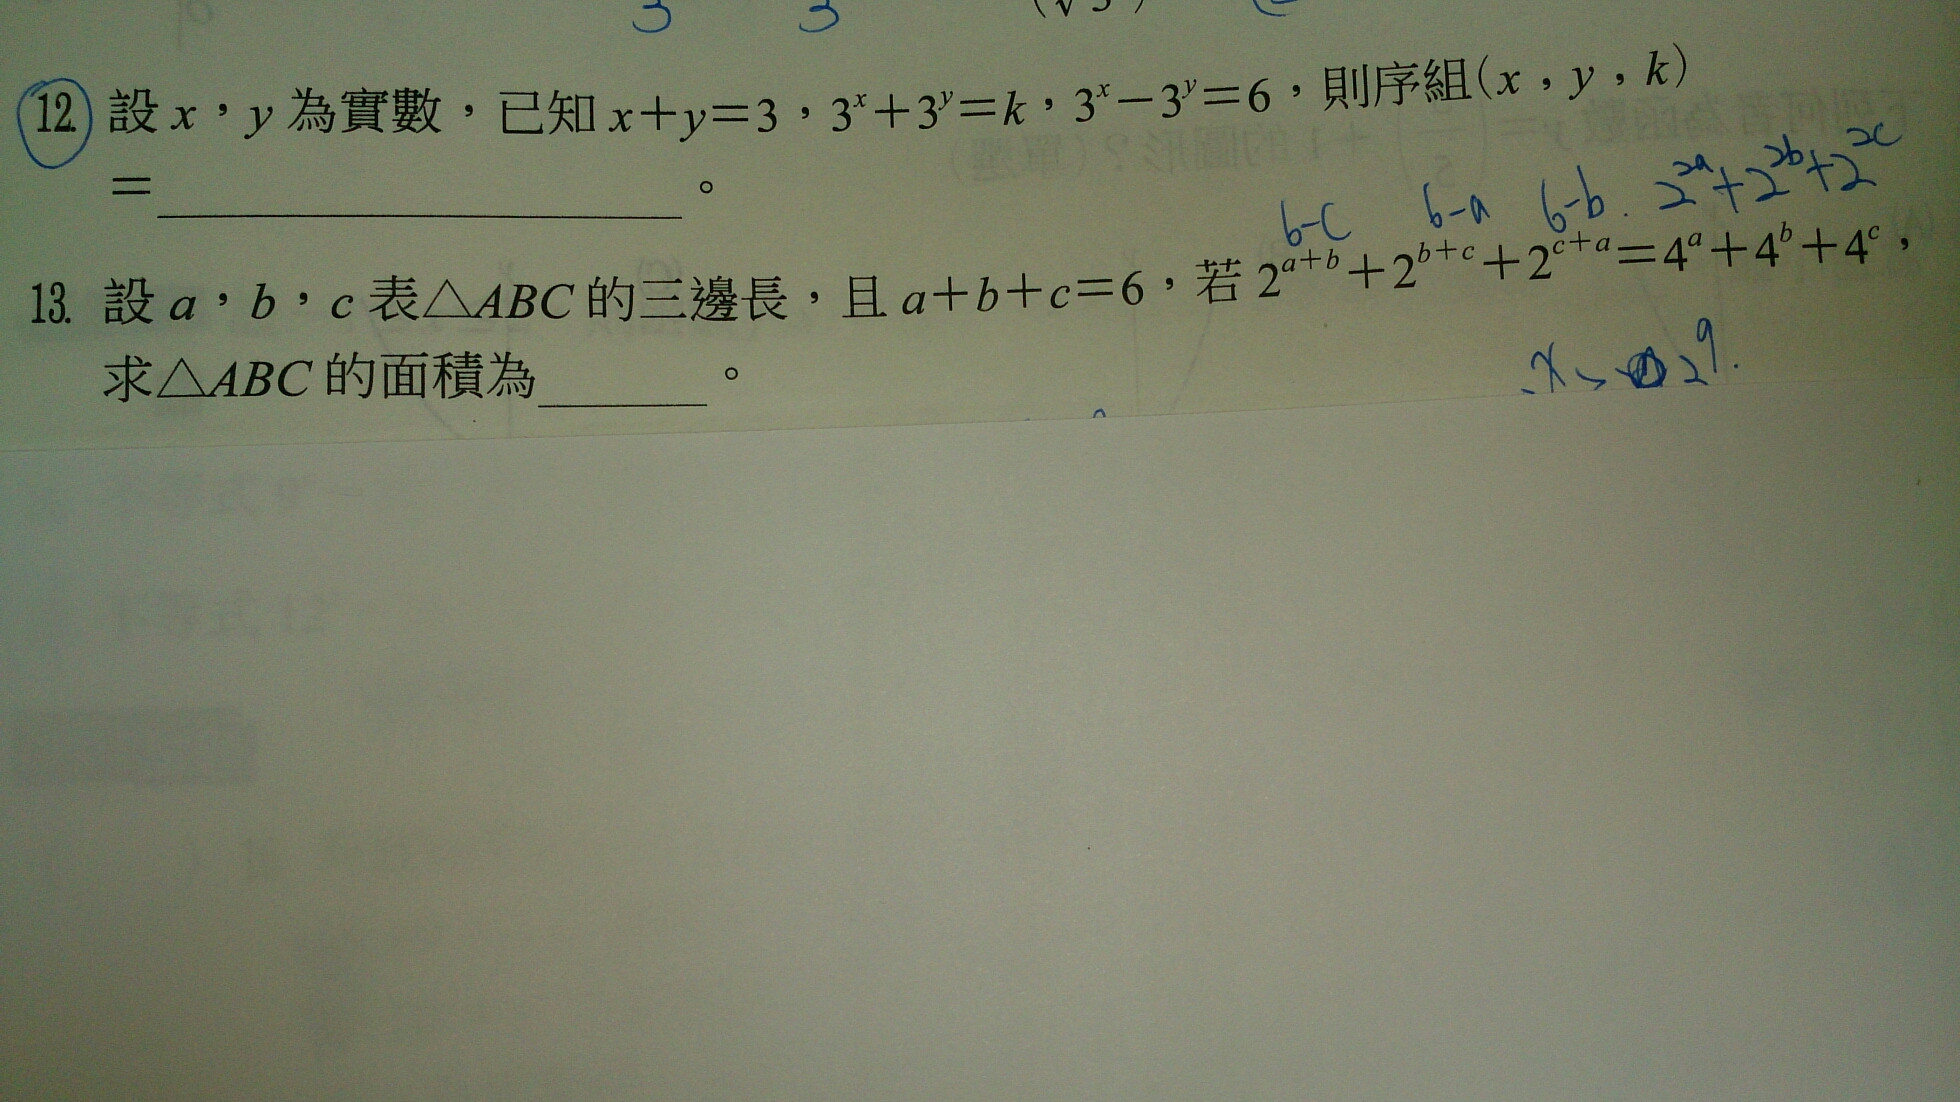 3 3 (√3)
12. 設 x,y 為實數,已知 x+y=3,3^x+3^y=k,3^x-3^y=6,則序組(x,y,k)
=________。
6-c 6-a 6-b. 2^2a+2^2b+2^2c
13. 設 a,b,c 表△ABC 的三邊長,且 a+b+c=6,若 2^{a+b}+2^{b+c}+2^{c+a}=4^a+4^b+4^c,
求△ABC 的面積為______。